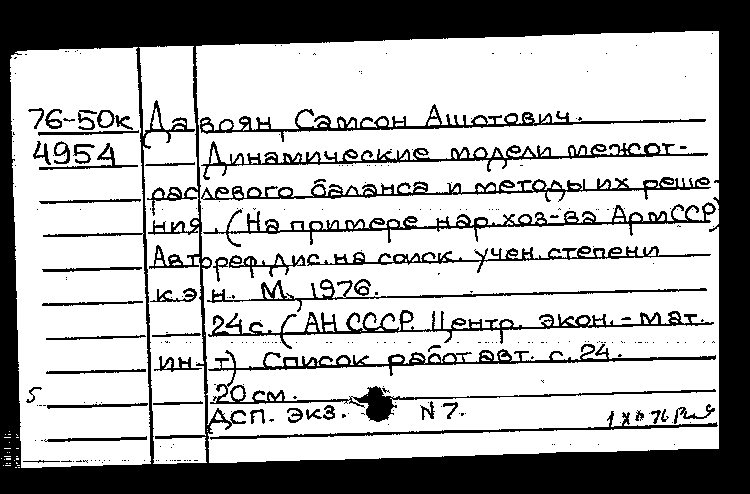 76-50к Давоян, Самсон Ашотович.
4954 Динамические модели межот-
раслевого баланса и методы их реше-
ния. (На примере нар. хоз-ва АрмССР)
Автореф. дис. на соиск. учен. степени
к. э. н. М., 1976.
24 с. (АН СССР. Центр. экон.-мат.
ин-т) Список работ авт. с. 24.
5 20 см.
ДСП. экз. N 7.